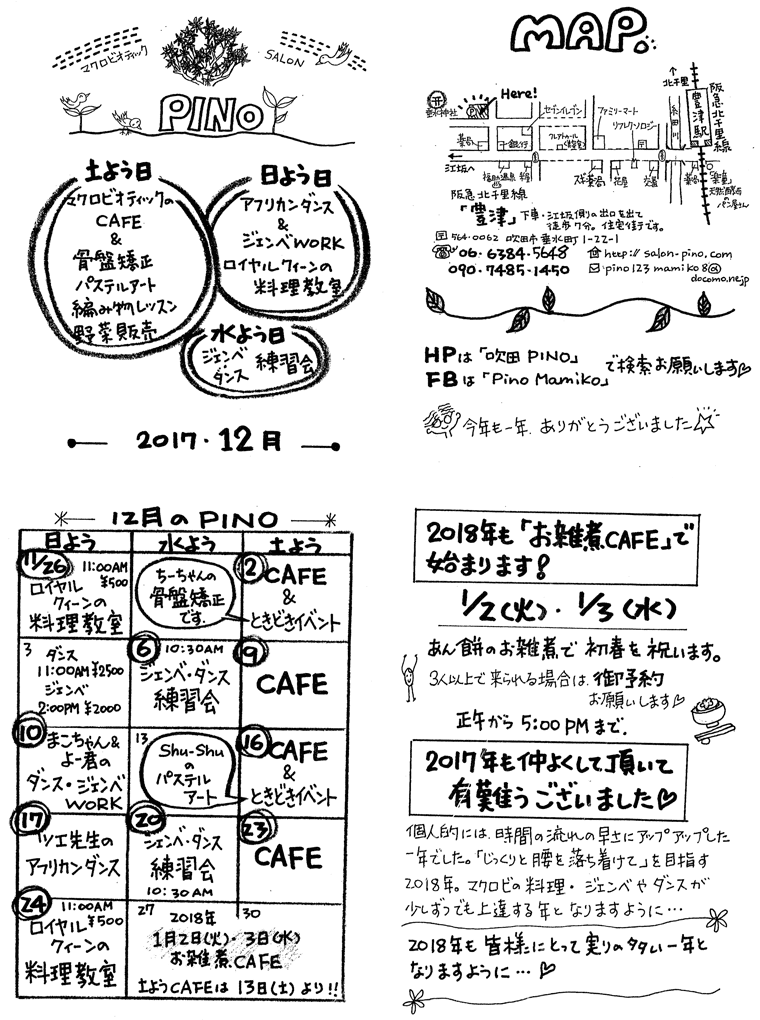 マクロビオティック
SALON
PINO
土よう日
マクロビオティックの
CAFE
&
骨盤矯正
パステルアート
編み物レッスン
野菜販売
日よう日
アフリカンダンス
&
ジェンベWORK
ロイヤルクィーンの
料理教室
水よう日
ジェンベ・
ダンス
練習会
2017・12月
MAP.
Here!
セブンイレブン
ファミリーマート
リフレクソロジー
糸田川
↑
北千里
豊津駅
阪急北千里線
垂水神社
薬局
銀行
江坂へ
スギ薬局
花屋
交番
薬局
天然酵母
パン屋さん
阪急北千里線
「豊津」下車・江坂側の出口を出て
徒歩7分。住宅街です。
〒564-0062 吹田市垂水町1-22-1
☎06・6384・5648
http://salon-pino.com
090・7485・1450
pino123mamiko8@
docomo.ne.jp
HPは「吹田PINO」
FBは「Pino Mamiko」
で検索お願いします♡
今年も一年、ありがとうございました☆
12月のPINO
日よう
水よう
土よう
11/26
11:00AM
¥500
ロイヤル
クィーンの
料理教室
ちーちゃんの
骨盤矯正
です.
2 CAFE
&
ときどきイベント
3
ダンス
11:00AM ¥2500
ジェンベ
2:00PM ¥2000
6
10:30AM
ジェンベ・ダンス
練習会
9
CAFE
10
まこちゃん&
よー君の
ダンス・ジェンベ
WORK
13
Shu-Shu
の
パステル
アート
16 CAFE
&
ときどきイベント
17
ツエ先生の
アフリカンダンス
20
ジェンベ・ダンス
練習会
10:30AM
23
CAFE
24
11:00AM
¥500
ロイヤル
クィーンの
料理教室
27
30
2018年
1月2日(火)・3日(水)
お雑煮CAFE
土ようCAFEは13日(土)より!!
2018年も「お雑煮CAFE」で
始まります!
1/2(火)・1/3(水)
あん餅のお雑煮で初春を祝います。
3人以上で来られる場合は、御予約
お願いします♡
正午から5:00PMまで.
2017年も仲よくして頂いて
有難うございました♡
個人的には、時間の流れの早さにアップアップした
一年でした。「じっくりと腰を落ち着けて」を目指す
2018年。マクロビの料理・ジェンベやダンスが
少しずつでも上達する年となりますように…
2018年も皆様にとって実りの多い一年と
なりますように…♡